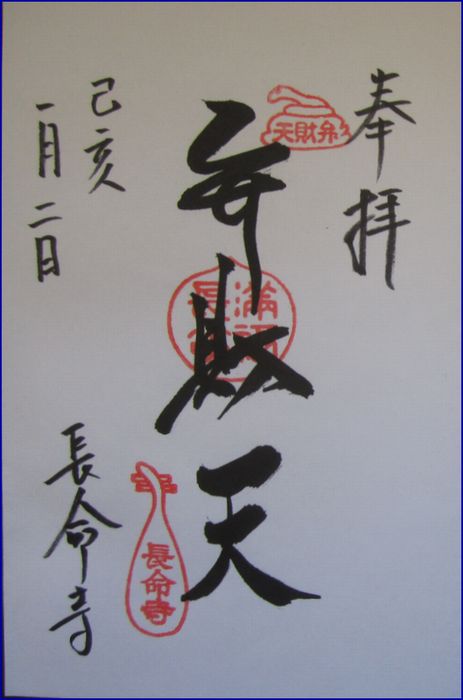 奉拝
天財弁
弁財天
満福
長命
己亥
一月二日
長命寺
長命寺